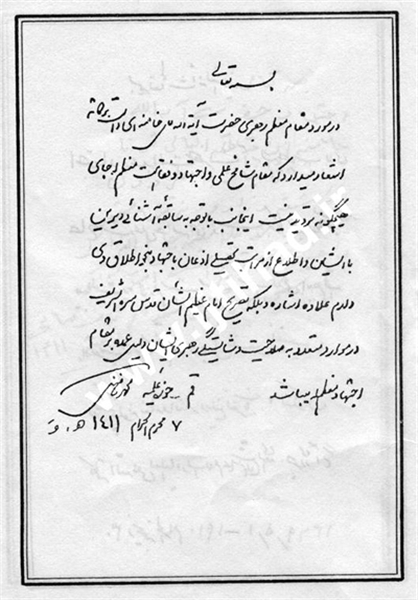 بسمه تعالی
در مورد مقام معظم رهبری حضرت آیة الله خامنه‌ای دامت برکاته
اشعار میدارد که مقام شامخ علمی و اجتهاد و فقاهت معظم له جای
هیچگونه تردید نیست اینجانب با توجه به سابقه آشنائی دیرین
با ایشان و اطلاع از مراتب تحصیلی اذعان باجتهاد بنحو اطلاق وی
دارم علاوه اشاره و بلکه تصریح امام عظیم الشأن قدس سره الشریف
در موارد متعدد به صلاحیت و شایستگی رهبری ایشان دلیل عمده بر مقام
اجتهاد معظم له میباشد
قم - حوزه علمیه
۷ محرم الحرام ۱۴۱۱ ه‍ . ق